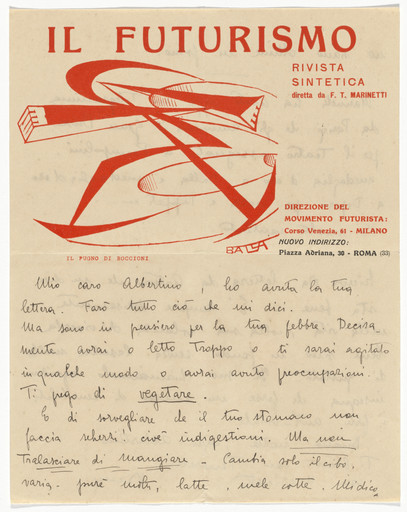 IL FUTURISMO
RIVISTA
SINTETICA
diretta da F. T. MARINETTI
DIREZIONE DEL
MOVIMENTO FUTURISTA:
Corso Venezia, 61 - MILANO
NUOVO INDIRIZZO:
Piazza Adriana, 30 - ROMA (33)
BALLA
IL PUGNO DI BOCCIONI
Mio caro Albertino, ho avuta la tua
lettera. Farò tutto ciò che mi dici.
Ma sono in pensiero per la tua febbre. Decisa-
mente avrai o letto troppo o ti sarai agitato
in qualche modo o avrai avuto preoccupazioni.
Ti prego di vegetare.
E di sorvegliare se il tuo stomaco non
faccia scherzi! cioè indigestioni. Ma non
tralasciare di mangiare - Cambia solo il cibo.
varia. purè molti, latte, mele cotte.